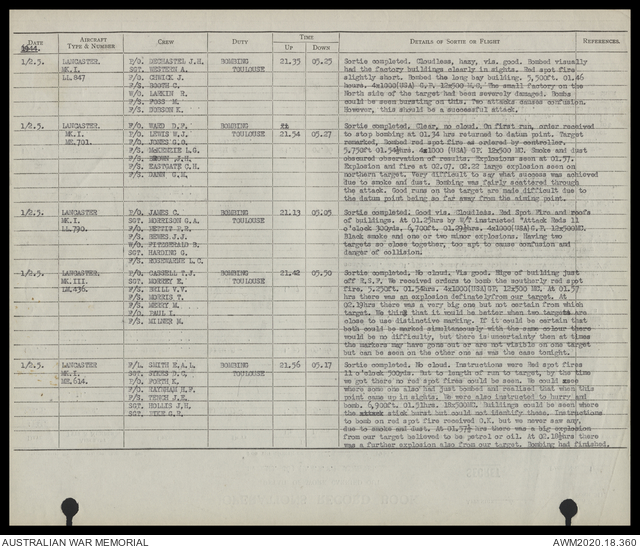 DATE AIRCRAFT TYPE & NUMBER CREW DUTY TIME UP DOWN DETAILS OF SORTIE OR FLIGHT REFERENCES.
1944.
1/2.5. LANCASTER. F/O. DECHASTEL J.H. BOMBING 21.35 05.25 Sortie completed. Cloudless, hazy, vis. good. Bombed visually
MK.I. SGT. WESTERN A. TOULOUSE had the factory buildings clearly in sights. Red spot fire
LL.847 F/S. CHWICK J. slightly short. Bombed the long bay building. 5,500ft. 01.46
F/S. BOOTH C. hours. 4x1000(USA) G.P. 12x500 M.C. The small factory on the
W/O. LARKIN R. North side of the target had been severely damaged. Bombs
F/S. FOSS M. could be seen bursting on this. Two attacks causes confusion.
F/S. DOBSON K. However, this should be a successful attack.
1/2.5. LANCASTER F/O. WARD D.F. BOMBING Sortie completed. Clear, no cloud. On first run, order received
MK.I. P/O. LEWIS W.J. TOULOUSE 21.54 05.27 to stop bombing at 01.34 hrs returned to datum point. Target
ME.701. F/O. JONES G.O. remarked, Bombed red spot fire as ordered by controller.
F/S. McKENZIE L.G. 5,750ft 01.54½hrs. 4x1000 (USA) GP. 12x500 MC. Smoke and dust
F/S. BROWN J.H. obscured observation of results. Explosions seen at 01.57.
F/S. EASTGATE C.H. Explosion and fire at 02.07. 02.22 large explosion seen on
F/S. DANN G.H. northern target. Very difficult to say what success was achieved
due to smoke and dust. Bombing was fairly scattered through
the attack. Good runs on the target are made difficult due to
the datum point being so far away from the aiming point.
1/2.5. LANCASTER P/O JAMES C. BOMBING 21.13 05.03 Sortie completed. Good vis. Cloudless. Red Spot Fire and roofs
MK.I. SGT. MORRISON G.A. TOULOUSE of buildings. At 01.25hrs by W/T instructed "Attack Reds 11
LL.790. F/O. NETTIT P.R. o'clock 300yds. 6,700ft. 01.29½hrs. 4x1000(USA)G.P. 12x500MC.
F/S. HENRS J.J. Black smoke and one or two minor explosions. Having two
W/O. FITZGERALD B. targets so close together, too apt to cause confusion and
SGT. HARDING G. danger of collision.
F/S. ROSENGARNE L.C.
1/2.5. LANCASTER. F/O. CASSELL T.J. BOMBING 21.42 05.30 Sortie completed. No cloud. Vis good. Edge of building just
MK.III. SGT. MOOREY E. TOULOUSE off R.S.F. We received orders to bomb the southerly red spot
LM.436. F/S. BRILL V.V. fire. 5,250ft. 01.54hrs. 4x1000(USA)GP. 12x500 MC. At 01.57
F/S. NORRIS T. hrs there was an explosion definatelyfrom our target. At
F/S. MERRY M. 02.19hrs there was a very big one but not certain from which
F/S. PAUL I. target. We think that it would be better when two targets are
F/S. MILNER M. close to use distinctive marking. If it could be certain that
both could be marked simultaneously with the same colour there
would be no difficulty, but there is uncertainty then at times
the markers may have gone out or are not visible on one target
but can be seen on the other one as was the case tonight.
1/2.5. LANCASTER F/L. SMITH E.A.L. BOMBING 21.56 05.17 Sortie completed. No cloud. Instructions were Red spot fires
MK.I. SGT. TOULOUSE 11 o'clock 300yds. But to length of run to target, by the time
ME.614. F/O. FORTH K. we got there no red spot fires could be seen. We could seen
F/O. H.F. where some one also had just bombed and realised that when this
F/S. TENCH J.E. point came up in sights. We were also instructed to hurry and
SGT. HOLLIS J.H. bomb. 6,900ft. 01.51hrs. 18x500MC. Buildings could be seen where
SGT. PIKE G.R. the stick burst but could not identify these. Instructions
to bomb on red spot fire received O.K. but we never saw any,
due to smoke and dust. At 01.57½ hrs there was a big explosion
from our target believed to be petrol or oil. At 02.18½hrs there
was a further explosion also from our target. Bombing had finished.
AUSTRALIAN WAR MEMORIAL AWM2020.18.360